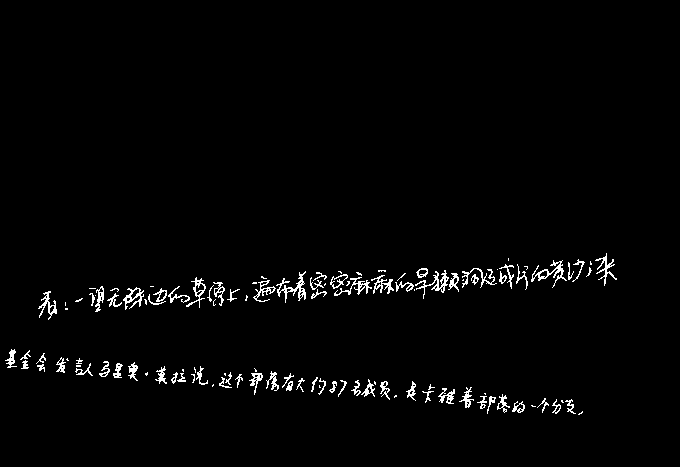 看：一望无际边的草原上，遍布着密密麻麻的旱獭洞及成片的黄沙
基金会发言人马里奥·莫拉说，这个部落有大约87名成员，是卡雅普部落的一个分支。